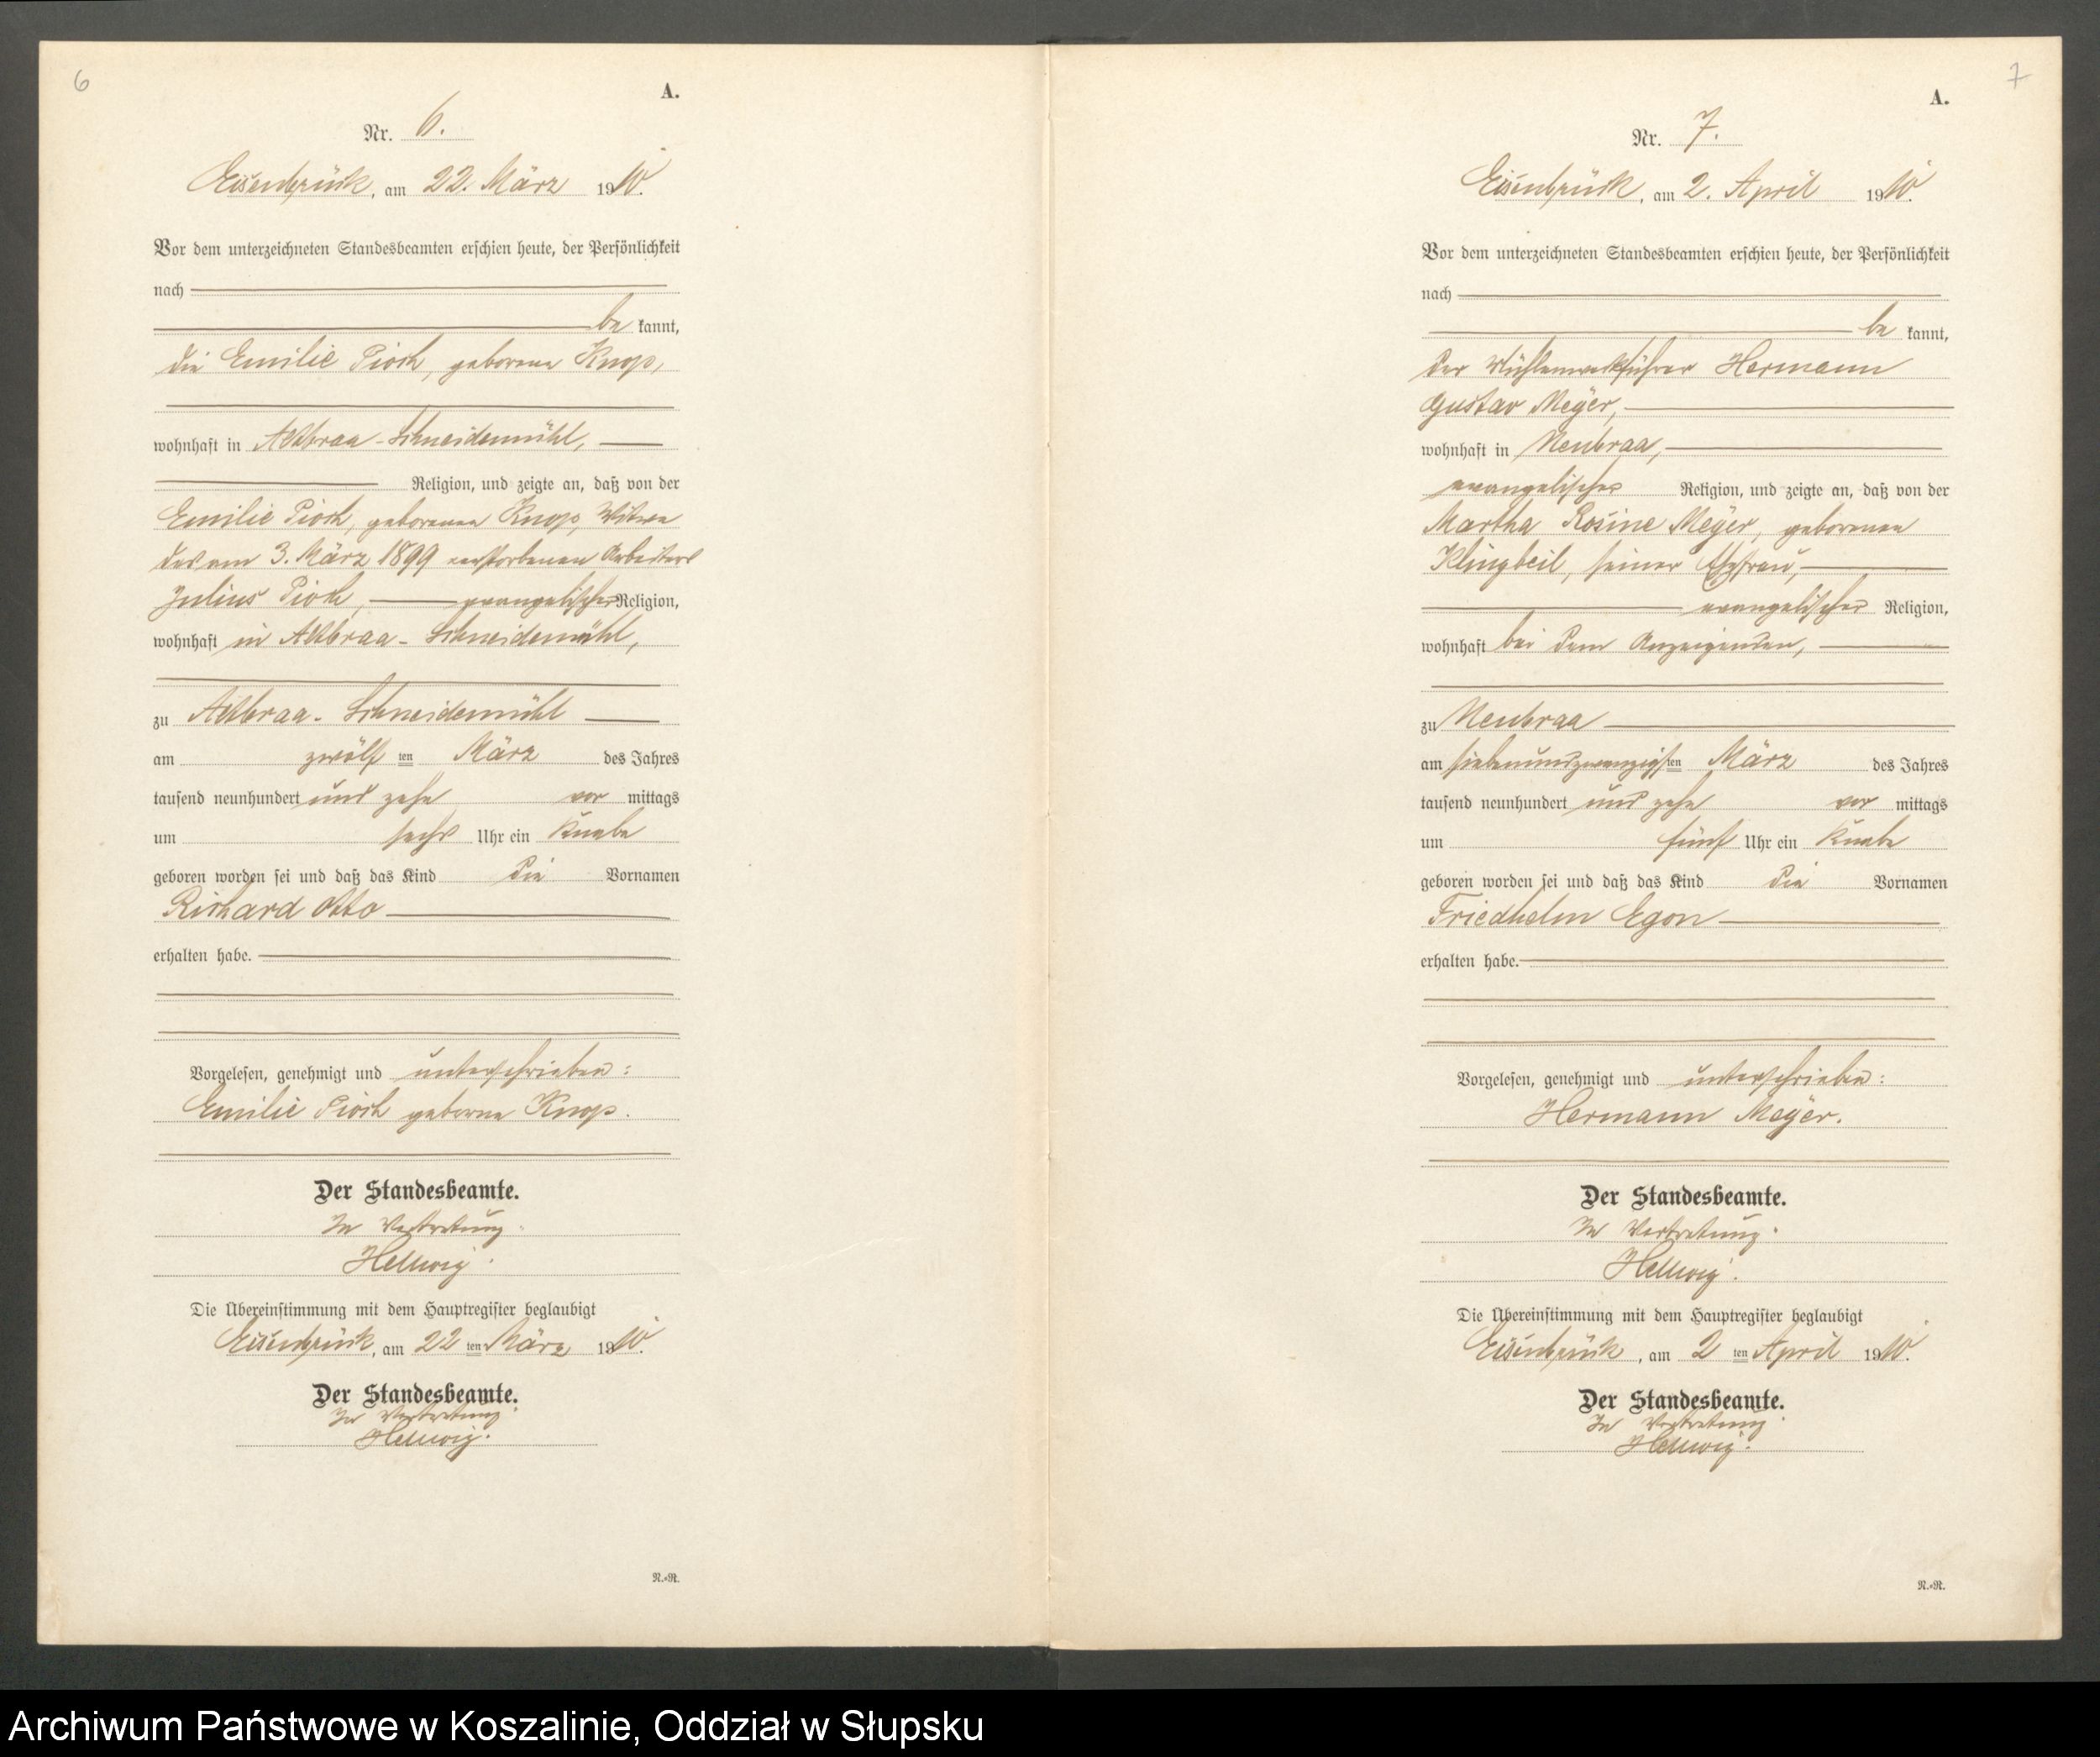 6
A.
Nr. 6.
Eisenbrück, am 22. März 1910.
Vor dem unterzeichneten Standesbeamten erschien heute, der Persönlichkeit
nach
be kannt,
die Emilie Pioch, geborene Knop,
wohnhaft in Altbraa-Schneidemühl,
Religion, und zeigte an, daß von der
Emilie Pioch, geborenen Knop, Witwe
des am 3. März 1899 verstorbenen Arbeiters
Julius Pioch, evangelischer Religion,
wohnhaft in Altbraa-Schneidemühl,
zu Altbraa-Schneidemühl
am zwölf ten März des Jahres
tausend neunhundert und zehn vor mittags
um sechs Uhr ein Knabe
geboren worden sei und daß das Kind die Vornamen
Richard Otto
erhalten habe.
Vorgelesen, genehmigt und unterschrieben:
Emilie Pioch geborne Knop.
Der Standesbeamte.
In Vertretung.
Hellwig.
Die Übereinstimmung mit dem Hauptregister beglaubigt
Eisenbrück, am 22 ten März 1910.
Der Standesbeamte.
In Vertretung.
Hellwig.
N.-R.
7
A.
Nr. 7.
Eisenbrück, am 2. April 1910.
Vor dem unterzeichneten Standesbeamten erschien heute, der Persönlichkeit
nach
be kannt,
der Mühlenwerkführer Hermann
Gustav Meyer,
wohnhaft in Neubraa,
evangelischer Religion, und zeigte an, daß von der
Martha Rosine Meyer, geborenen
Klingbeil, seiner Ehefrau,
evangelischer Religion,
wohnhaft bei dem Anzeigenden,
zu Neubraa
am siebenundzwanzigsten März des Jahres
tausend neunhundert und zehn vor mittags
um fünf Uhr ein Knabe
geboren worden sei und daß das Kind die Vornamen
Friedhelm Egon
erhalten habe.
Vorgelesen, genehmigt und unterschrieben:
Hermann Meyer.
Der Standesbeamte.
In Vertretung.
Hellwig.
Die Übereinstimmung mit dem Hauptregister beglaubigt
Eisenbrück, am 2 ten April 1910.
Der Standesbeamte.
In Vertretung.
Hellwig.
N.-R.
Archiwum Państwowe w Koszalinie, Oddział w Słupsku